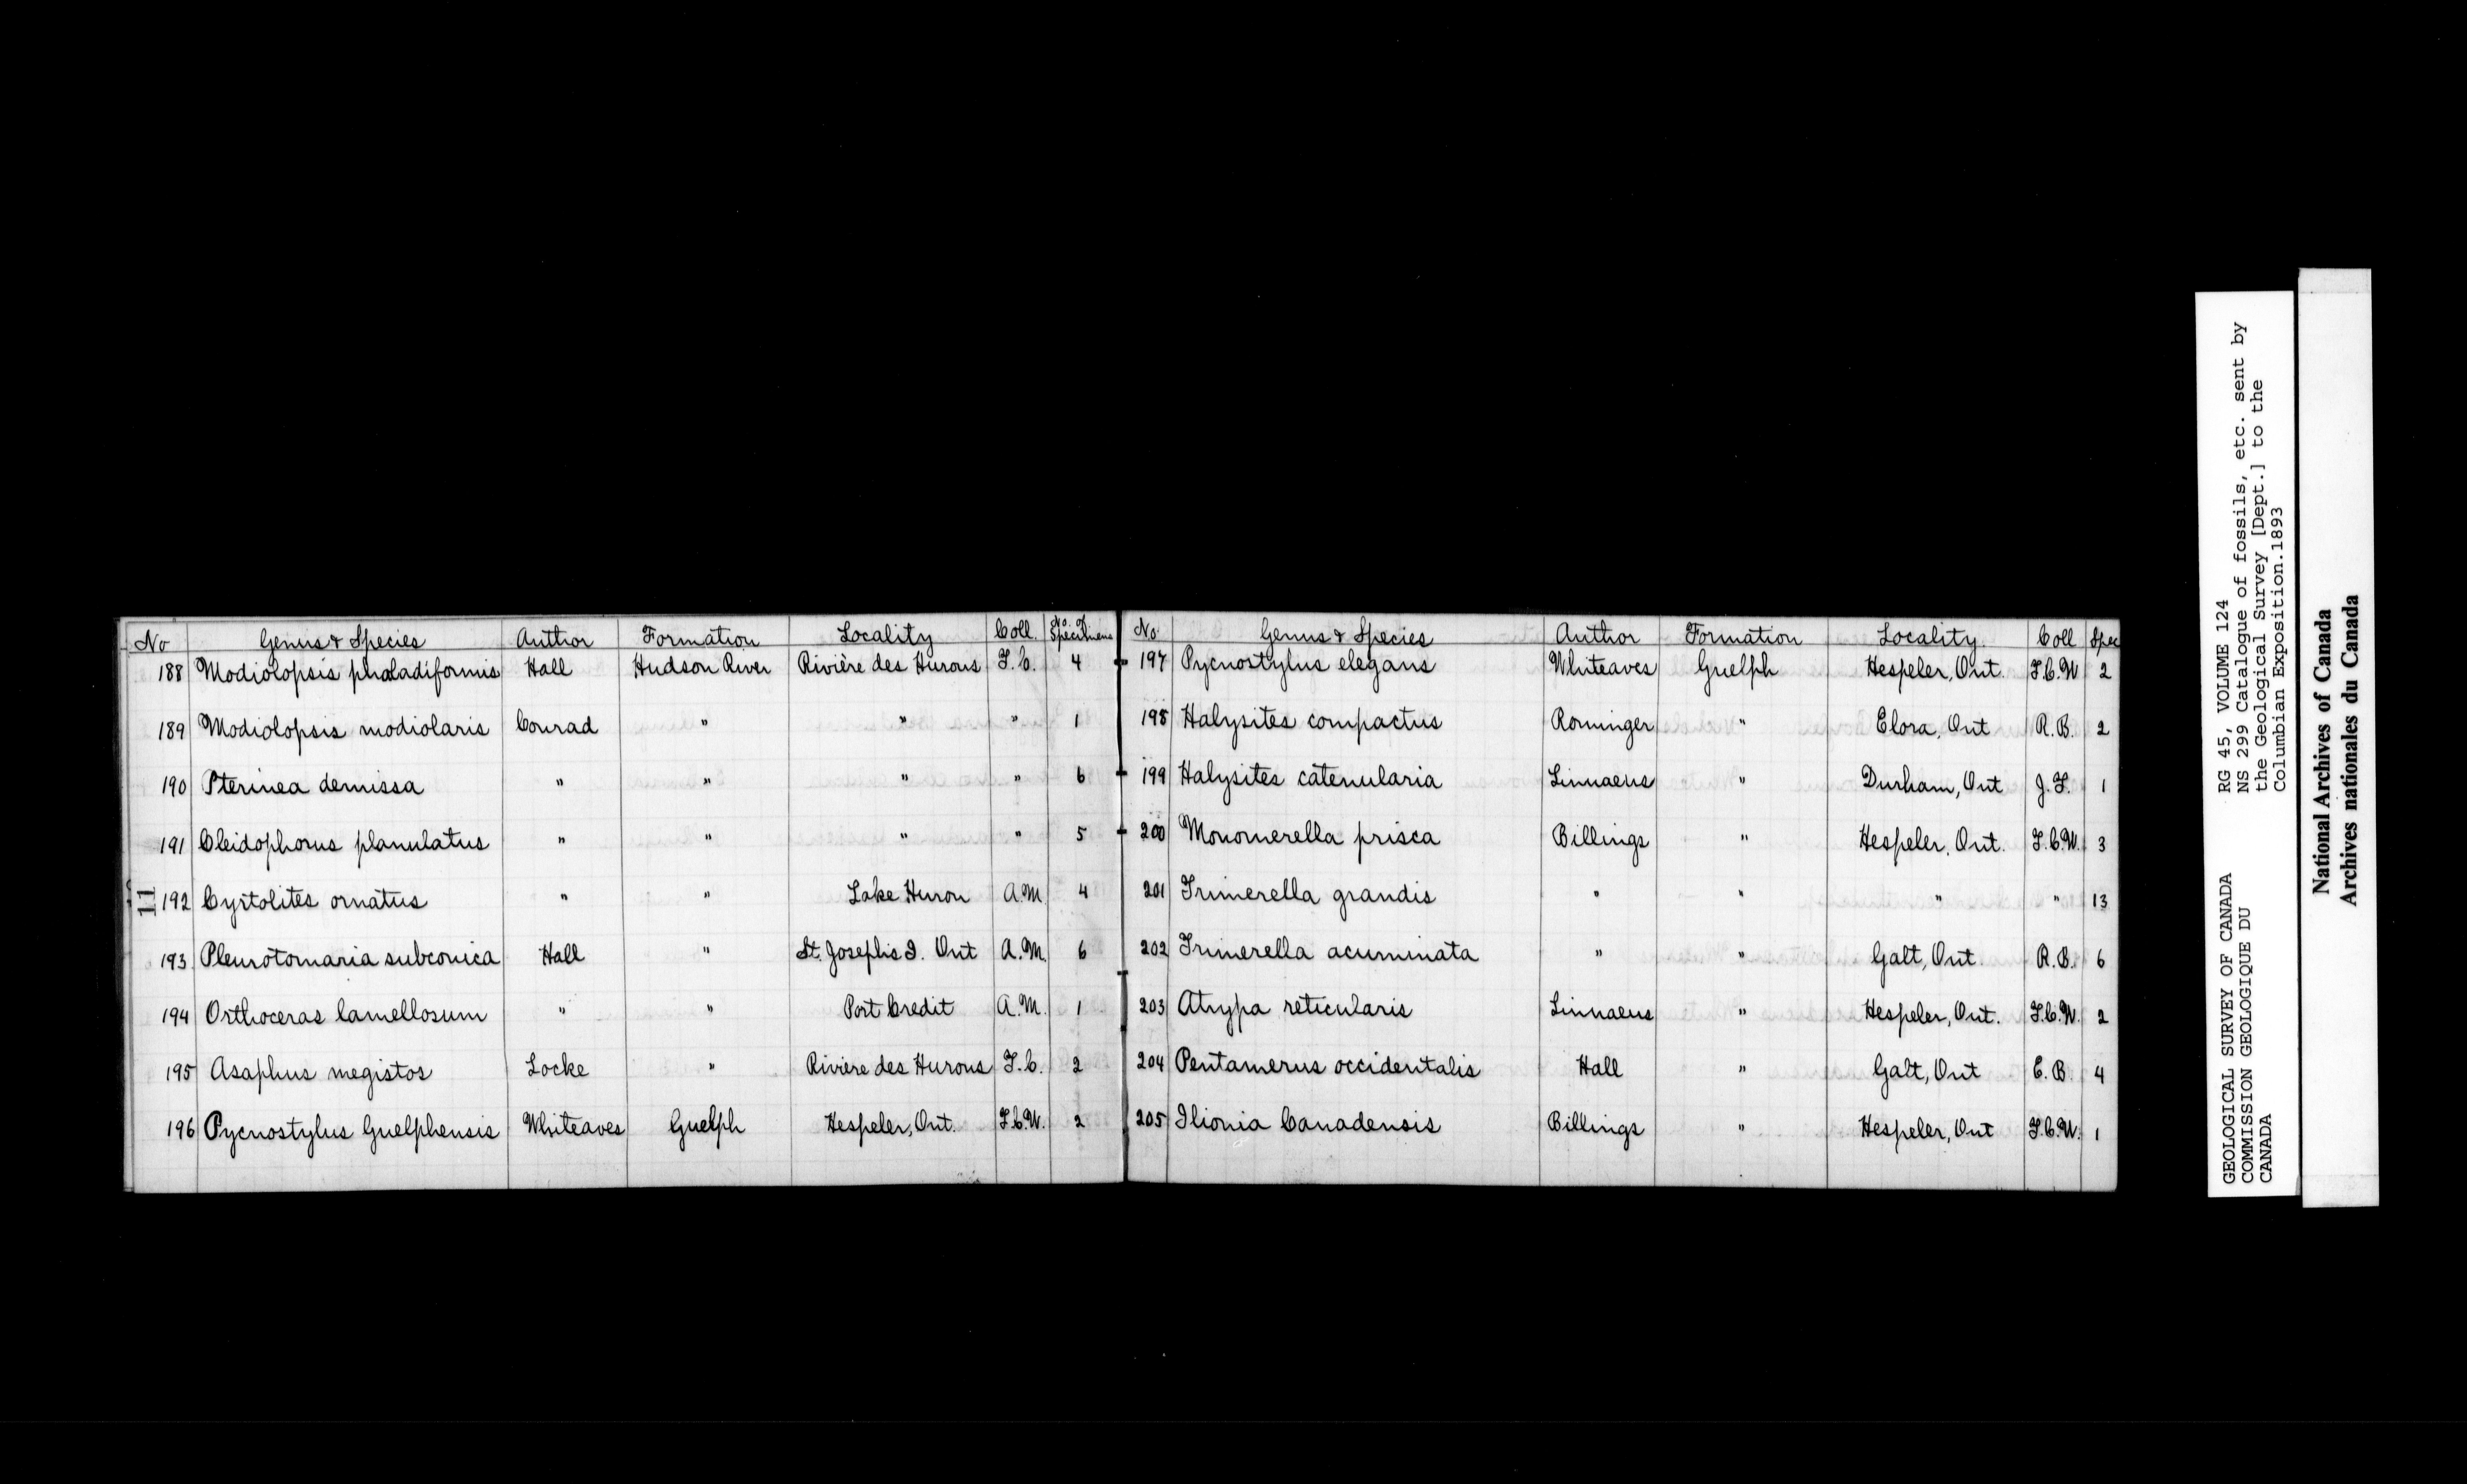 No Genus & Species Author Formation Locality Coll. No. of Specimens
188 Modiolopsis pholadiformis Hall Hudson River Rivière des Hurons T.C. 4
189 Modiolopsis modiolaris Conrad " " " 1
190 Pterinea demissa " " " " 6
191 Cleidophorus planulatus " " " " 5
11
192 Cyrtolites ornatus " " Lake Huron A.M. 4
193 Pleurotomaria subconica Hall " St. Josephs I. Ont A.M. 6
194 Orthoceras lamellosum " " Port Credit A.M. 1
195 Asaphus megistos Locke " Rivière des Hurons T.C. 2
196 Pycnostylus Guelphensis Whiteaves Guelph Hespeler, Ont. T.C.W. 2
No Genus & Species Author Formation Locality Coll Spec
197 Pycnostylus elegans Whiteaves Guelph Hespeler, Ont. T.C.W 2
198 Halysites compactus Rominger " Elora, Ont R.B. 2
199 Halysites catenularia Linnaeus " Durham, Ont J.T. 1
200 Monomerella prisca Billings " Hespeler, Ont. T.C.W. 3
201 Trimerella grandis " " " " 13
202 Trimerella acuminata " " Galt, Ont. R.B. 6
203 Atrypa reticularis Linnaeus " Hespeler, Ont. T.C.W. 2
204 Pentamerus occidentalis Hall " Galt, Ont E.B. 4
205 Ilionia Canadensis Billings " Hespeler, Ont T.C.W. 1
GEOLOGICAL SURVEY OF CANADA
COMMISSION GEOLOGIQUE DU
CANADA
RG 45, VOLUME 124
NS 299 Catalogue of fossils, etc. sent by
the Geological Survey [Dept.] to the
Columbian Exposition.1893
National Archives of Canada
Archives nationales du Canada